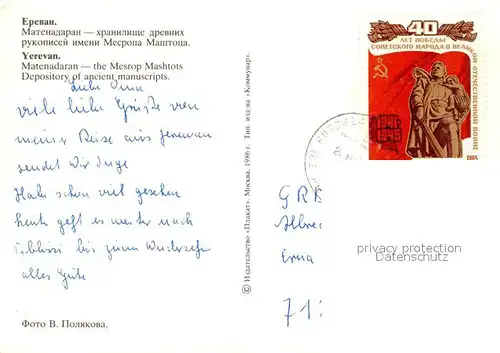 Ереван.
Матенадаран — хранилище древних
рукописей имени Месропа Маштоца.
Yerevan.
Matenadaran — the Mesrop Mashtots
Depository of ancient manuscripts.
Liebe Oma
viele liebe Grüße von
meiner Reise aus Jerewan
sendet Dir Inge
Habe schon viel gesehen
heute geht es weiter nach
Tiblissi bis zum Wiedersehen
alles Gute
Фото В. Полякова.
© Издательство «Плакат». Москва, 1986 г. Тип. изд-ва «Коммунар».
40
ЛЕТ ПОБЕДЫ
СОВЕТСКОГО НАРОДА В ВЕЛИКОЙ
ОТЕЧЕСТВЕННОЙ ВОЙНЕ
1941
1945
1985
Erna
71
privacy protection
Datenschutz